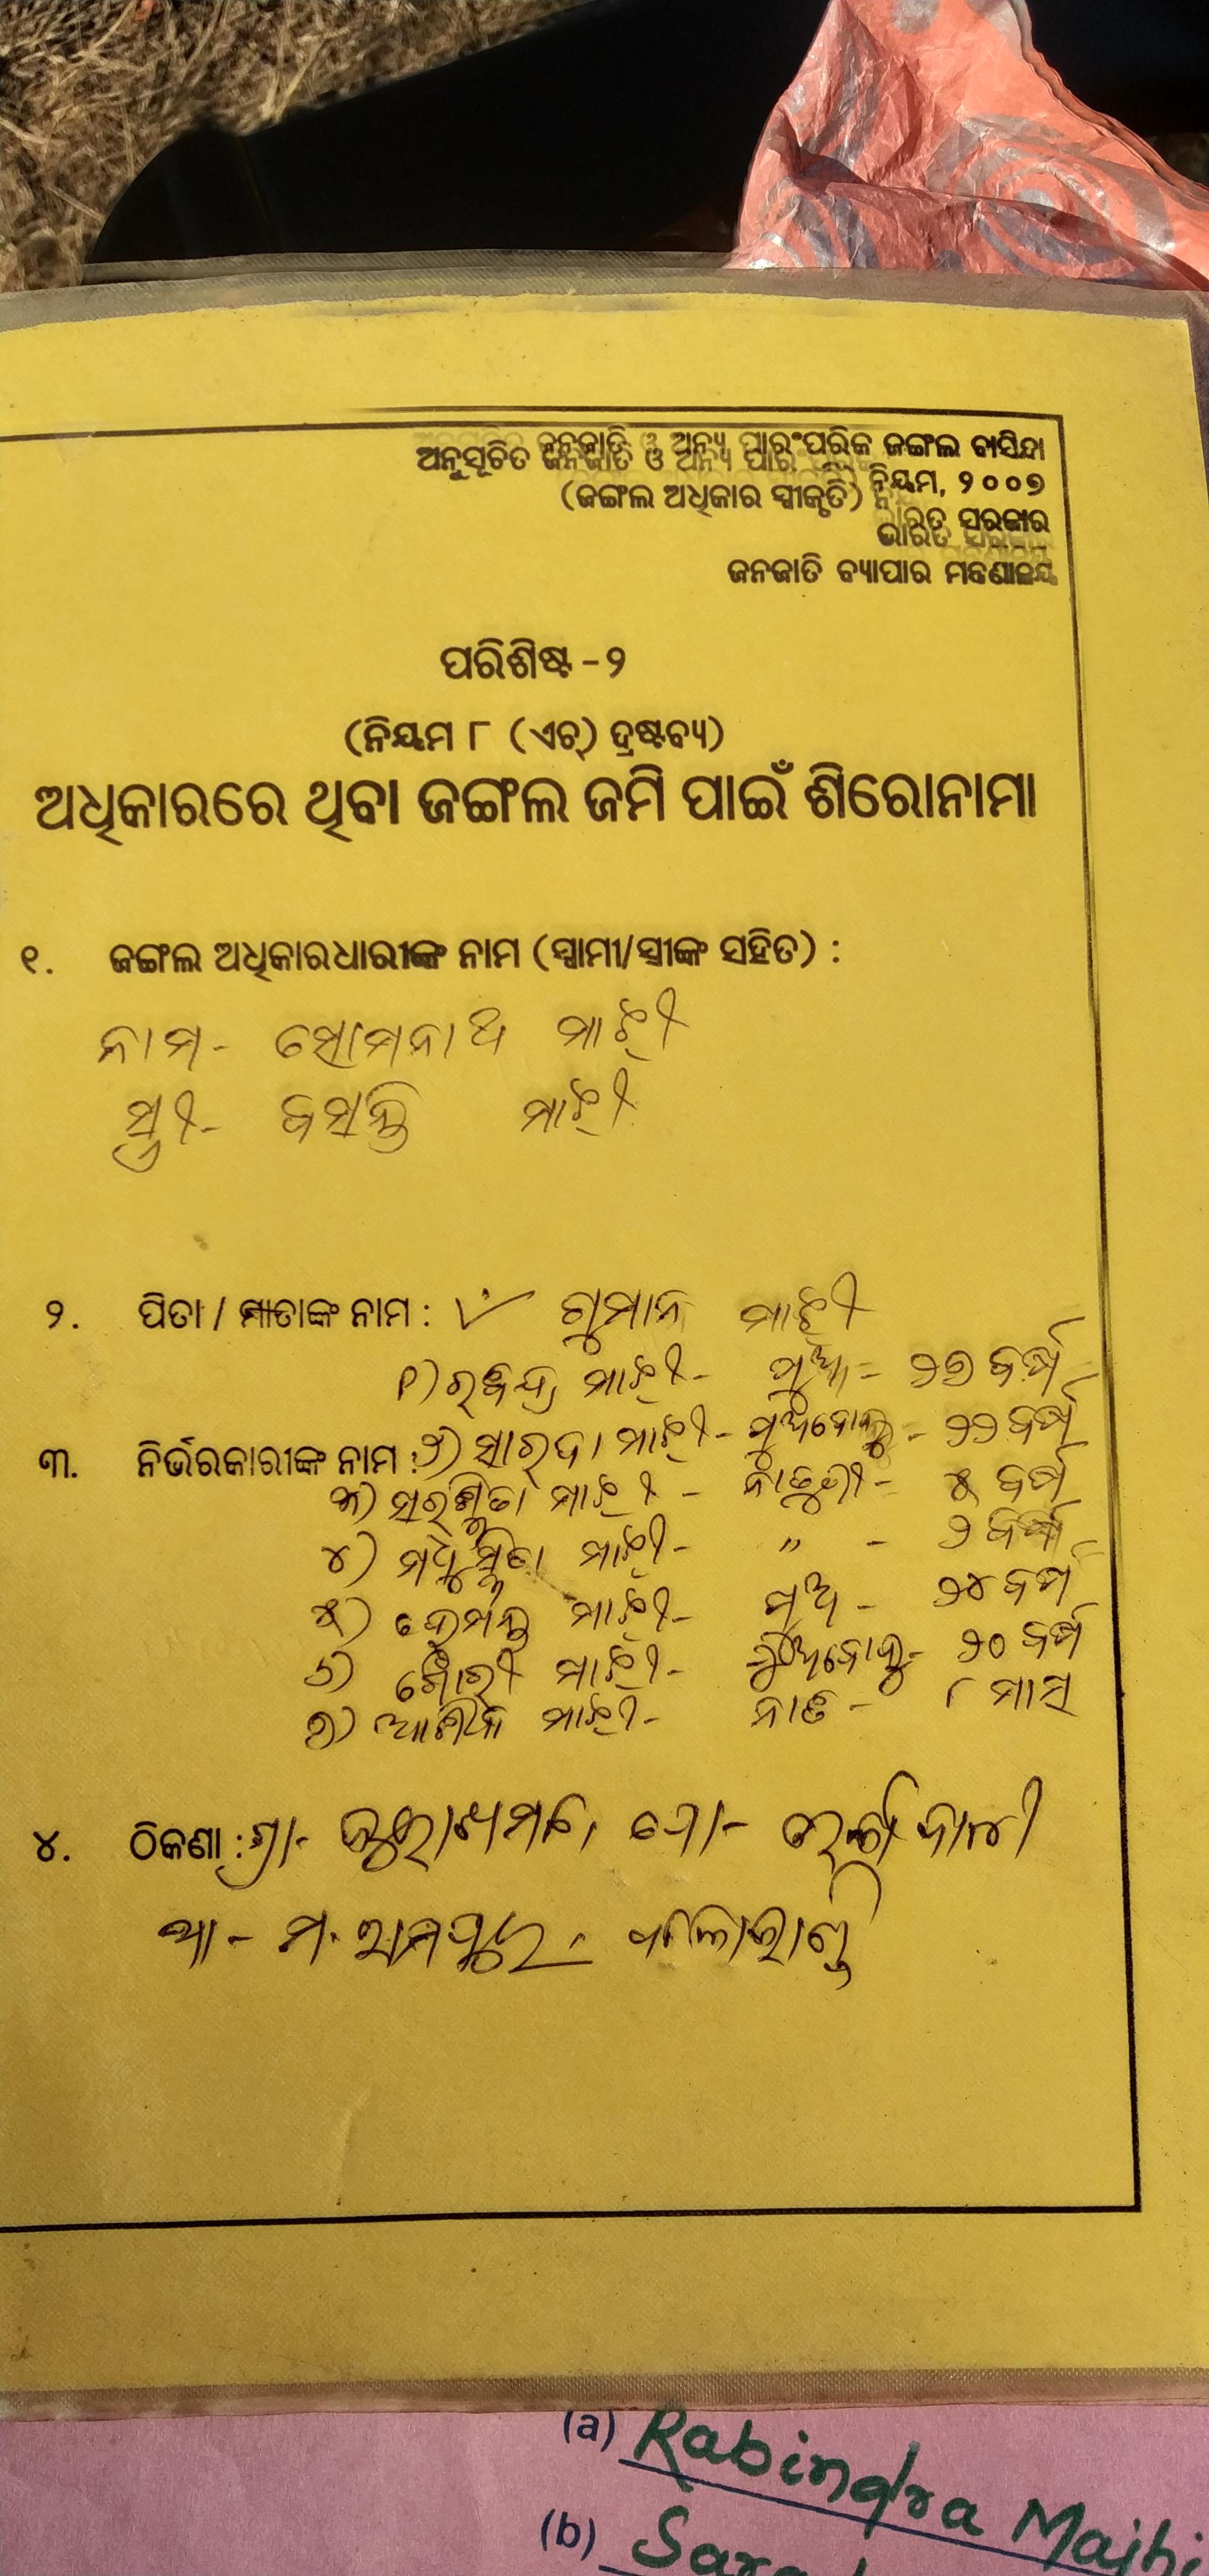 ଅନୁସୂଚିତ ଜନଜାତି ଓ ଅନ୍ୟ ପାରଂପରିକ ଜଙ୍ଗଲ ବାସିନ୍ଦା
(ଜଙ୍ଗଲ ଅଧିକାର ସ୍ୱୀକୃତି) ନିୟମ, ୨୦୦୭
ଭାରତ ସରକାର
ଜନଜାତି ବ୍ୟାପାର ମନ୍ତ୍ରଣାଳୟ
ପରିଶିଷ୍ଟ -୨
(ନିୟମ ୮ (ଏଚ୍) ଦ୍ରଷ୍ଟବ୍ୟ)
ଅଧିକାରରେ ଥିବା ଜଙ୍ଗଲ ଜମି ପାଇଁ ଶିରୋନାମା
୧. ଜଙ୍ଗଲ ଅଧିକାରଧାରୀଙ୍କ ନାମ (ସ୍ୱାମୀ/ସ୍ତ୍ରୀଙ୍କ ସହିତ) :
ନାମ - ସୋମନାଥ ମାଝୀ
ସ୍ତ୍ରୀ - ବସନ୍ତି ମାଝୀ
୨. ପିତା / ମାତାଙ୍କ ନାମ : ଗୁମାନ ମାଝୀ
୧) ରବିନ୍ଦ୍ର ମାଝୀ - ପୁଅ - ୨୭ ବର୍ଷ
୩. ନିର୍ଭରକାରୀଙ୍କ ନାମ : ୨) ସାରଦା ମାଝୀ - ପୁଅବୋହୁ - ୨୨ ବର୍ଷ
୩) ମାଝୀ - ନାତୁଣୀ - ୫ ବର୍ଷ
୪) ମଧୁସ୍ମିତା ମାଝୀ - " - ୨ ବର୍ଷ
୫) ହେମନ୍ତ ମାଝୀ - ପୁଅ - ୨୪ ବର୍ଷ
୬) ଗୌରୀ ମାଝୀ - ପୁଅବୋହୁ - ୨୦ ବର୍ଷ
୭) ମାଝୀ - ନାତି - ୮ ମାସ
୪. ଠିକଣା : ଗ୍ରା - ପୋ -
ଥା - ମ. ରାମପୁର
(a) Rabindra Majhi
(b)